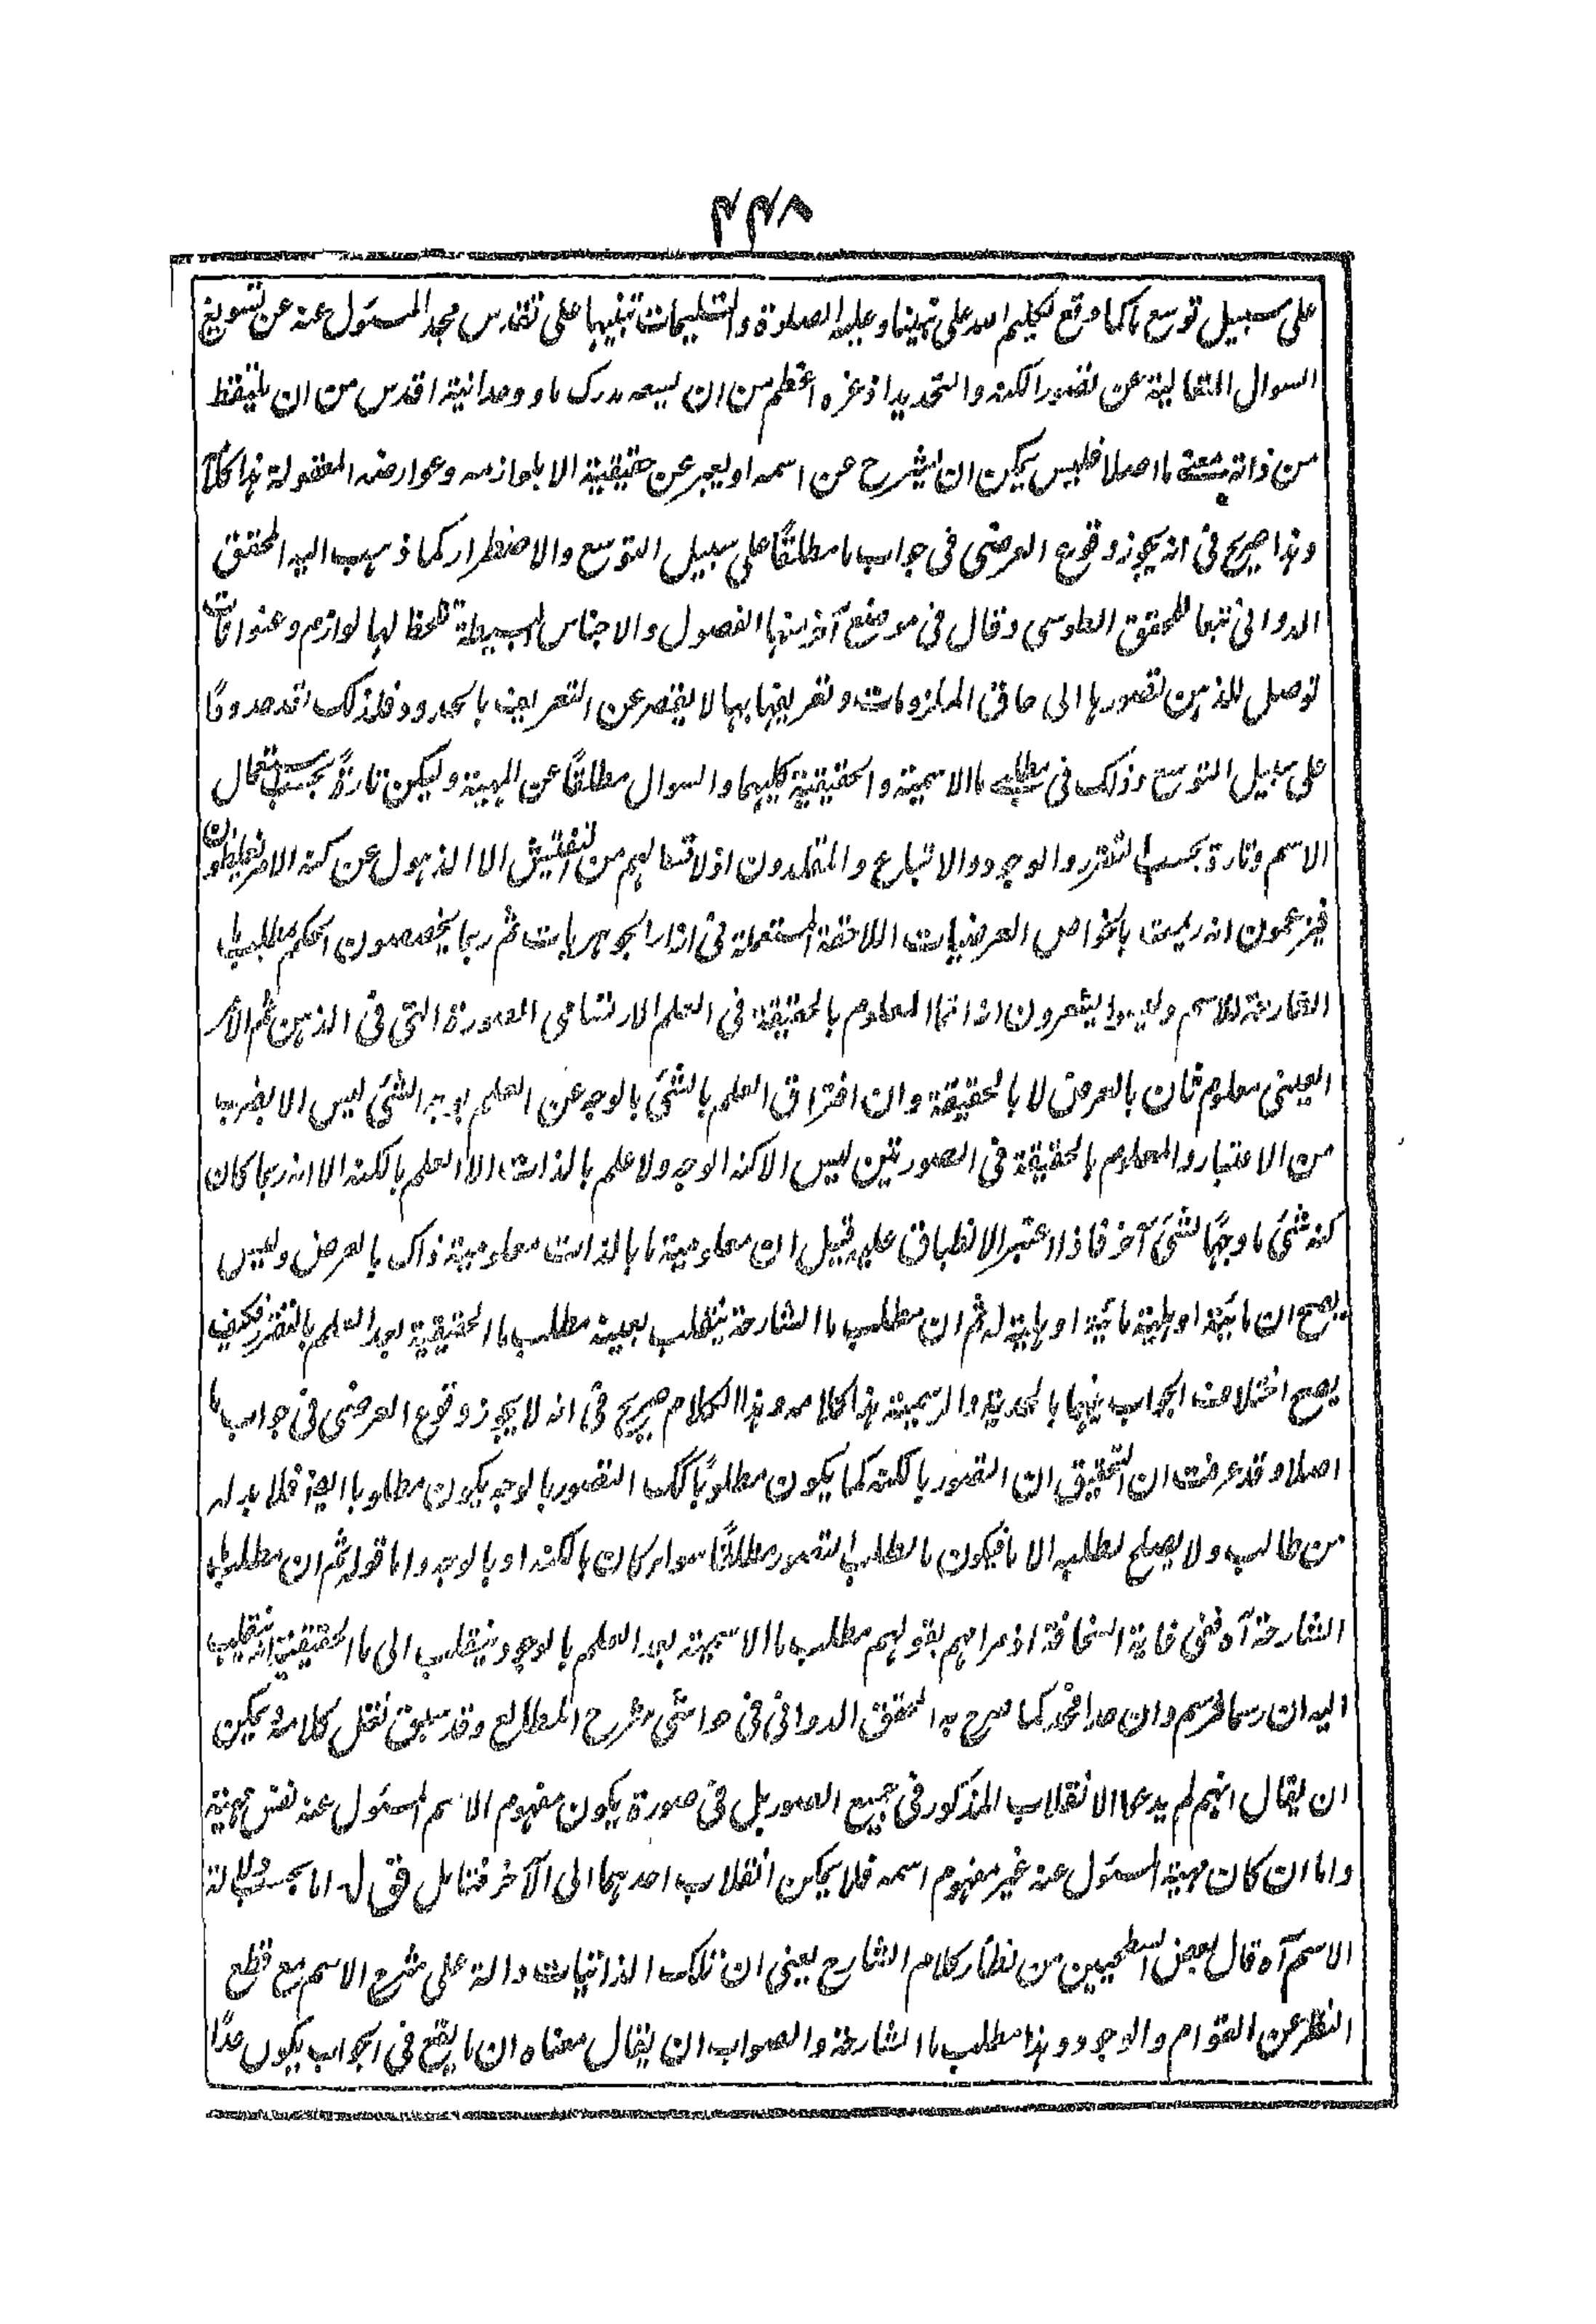 ۴۴۸
على سبيل توسع ما كما وقع لكليم الله على نبينا وعليه الصلوة والتسليمات تنبيها على تقدس مجد المسئول عنه عن تسويغ
السوال المتعالية عن تصور الكنه والتحديد اذ عزه اعظم من ان يسعه مدرك ما ووحدانية اقدس من ان يلتقظ
من ذاته ما اصلا فليس يمكن ان يشرح عن اسمه او يعبر عن حقيقية الا بلوازمه وعوارضه المعقولة هذا كلامه
وهذا صريح فى انه يجوز وقوع العرضى فى جواب ما مطلقًا على سبيل التوسع والاضطرار كما ذهب اليه المحقق
الدوانى تبعا للمحقق الطوسى وقال فى موضع آخر منها الفصول والاجناس البسيطة تلحظ لها لوازم وعنوانات
توصل للذهن تصورها الى حاق الملزومات وتعريفها بها لا يقصر عن التعريف بالحدود فلذلك تقد حدودًا
على سبيل التوسع وذلك فى مطلب ما الاسمية والحقيقية كليهما والسوال مطلقًا عن المهية وليكن تارةً بحسب استعمال
الاسم وتارة بحسب التقرر والوجود والاتباع والمقلدون اذ لاتعاليهم من التفتيش الا الذهول عن كنه الامر يغلطون
فيزعمون انه ريمت بالخواص العرضيات اللاحقة المستعملة فى ازاء الجوهريات ثم ربما يخصصون الحكم بمطلب ما
الشارحة للاسم وليسوا يشعرون انه انما المعلوم بالحقيقة فى العلم الارتسامى الصورة التى فى الذهن ثم الامر
العينى معلوم ثان بالعرض لا بالحقيقة وان افتراق العلم بالشئ بالوجه عن العلم بوجه الشئ ليس الا بضرب
من الاعتبار والمعلوم بالحقيقة فى الصورتين ليس الا كنه الوجه ولا علم بالذات الا العلم بالكنه الا انه ربما كان
كنه شئ ما وجهًا لشئ آخر فاذا اعتبر الانطباق عليه قيل ان معلومية ما بالذات معلومية ذاك بالعرض وليس
يصح ان مائية او هلية مائية او هلية له ثم ان مطلب ما الشارحة ينقلب بعينه مطلب ما الحقيقية بعد العلم بالتقرر فكيف
يصح اختلاف الجواب فيهما بالحدية والرسمية هذا كلامه وهذا الكلام صريح فى انه لا يجوز وقوع العرضى فى جواب ما
اصلا وقد عرفت ان التحقيق ان التصور بالكنه كما يكون مطلوبًا كك التصور بالوجه يكون مطلوبا ايضا فلا بد له
من طالب ولا يصلح لطلبه الا ما فيكون ما لطلب التصور مطلقًا سواء كان بالكنه او بالوجه واما قوله ثم ان مطلب ما
الشارحة آه ففى غاية السخافة اذ مرادهم بقولهم مطلب ما الاسمية بعد العلم بالوجود ينقلب الى ما الحقيقية انه ينقلب
اليه ان رسما فرسم وان حدا فحد كما صرح به المحقق الدوانى فى حواشى شرح المطالع وقد سبق نقل كلامه ويمكن
ان يقال انهم لم يدعوا الانقلاب المذكور فى جميع الصور بل فى صورة يكون مفهوم الاسم المسئول عنه نفس مهية
واما ان كان مهية المسئول عنه غير مفهوم اسمه فلا يمكن انقلاب احدهما الى الآخر فتامل قوله اما بحسب دلالة
الاسم آه قال بعض السطحيين من نظار كلام الشارح يعنى ان تلك الذاتيات دالة على شرح الاسم مع قطع
النظر عن القوام والوجود وهذا مطلب ما الشارحة والصواب ان يقال معناه ان ما يقع فى الجواب يكون حدًا